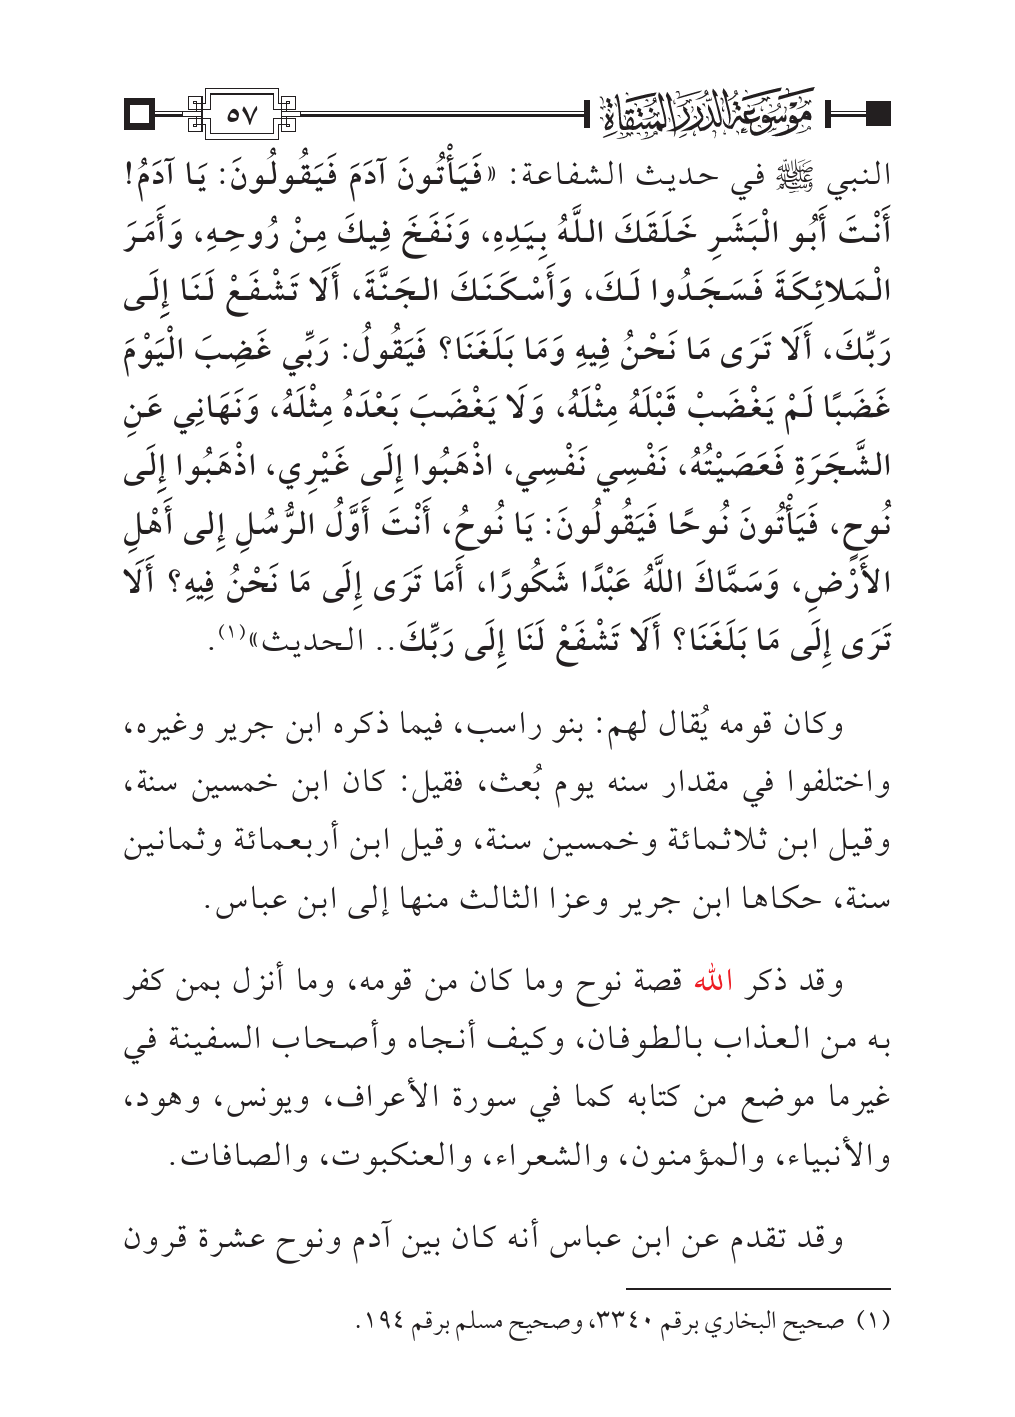 موسوعة الدرر المنتقاة
٥٧
النبي ﷺ في حديث الشفاعة: «فَيَأْتُونَ آدَمَ فَيَقُولُونَ: يَا آدَمُ!
أَنْتَ أَبُو الْبَشَرِ خَلَقَكَ اللَّهُ بِيَدِهِ، وَنَفَخَ فِيكَ مِنْ رُوحِهِ، وَأَمَرَ
الْمَلائِكَةَ فَسَجَدُوا لَكَ، وَأَسْكَنَكَ الجَنَّةَ، أَلَا تَشْفَعْ لَنَا إِلَى
رَبِّكَ، أَلَا تَرَى مَا نَحْنُ فِيهِ وَمَا بَلَغَنَا؟ فَيَقُولُ: رَبِّي غَضِبَ الْيَوْمَ
غَضَبًا لَمْ يَغْضَبْ قَبْلَهُ مِثْلَهُ، وَلَا يَغْضَبَ بَعْدَهُ مِثْلَهُ، وَنَهَانِي عَنِ
الشَّجَرَةِ فَعَصَيْتُهُ، نَفْسِي نَفْسِي، اذْهَبُوا إِلَى غَيْرِي، اذْهَبُوا إِلَى
نُوحٍ، فَيَأْتُونَ نُوحًا فَيَقُولُونَ: يَا نُوحُ، أَنْتَ أَوَّلُ الرُّسُلِ إِلى أَهْلِ
الأَرْضِ، وَسَمَّاكَ اللَّهُ عَبْدًا شَكُورًا، أَمَا تَرَى إِلَى مَا نَحْنُ فِيهِ؟ أَلَا
تَرَى إِلَى مَا بَلَغَنَا؟ أَلَا تَشْفَعْ لَنَا إِلَى رَبِّكَ.. الحديث»(١).
وكان قومه يُقال لهم: بنو راسب، فيما ذكره ابن جرير وغيره،
واختلفوا في مقدار سنه يوم بُعث، فقيل: كان ابن خمسين سنة،
وقيل ابن ثلاثمائة وخمسين سنة، وقيل ابن أربعمائة وثمانين
سنة، حكاها ابن جرير وعزا الثالث منها إلى ابن عباس.
وقد ذكر الله قصة نوح وما كان من قومه، وما أنزل بمن كفر
به من العذاب بالطوفان، وكيف أنجاه وأصحاب السفينة في
غيرما موضع من كتابه كما في سورة الأعراف، ويونس، وهود،
والأنبياء، والمؤمنون، والشعراء، والعنكبوت، والصافات.
وقد تقدم عن ابن عباس أنه كان بين آدم ونوح عشرة قرون
(١) صحيح البخاري برقم ٣٣٤٠، وصحيح مسلم برقم ١٩٤.